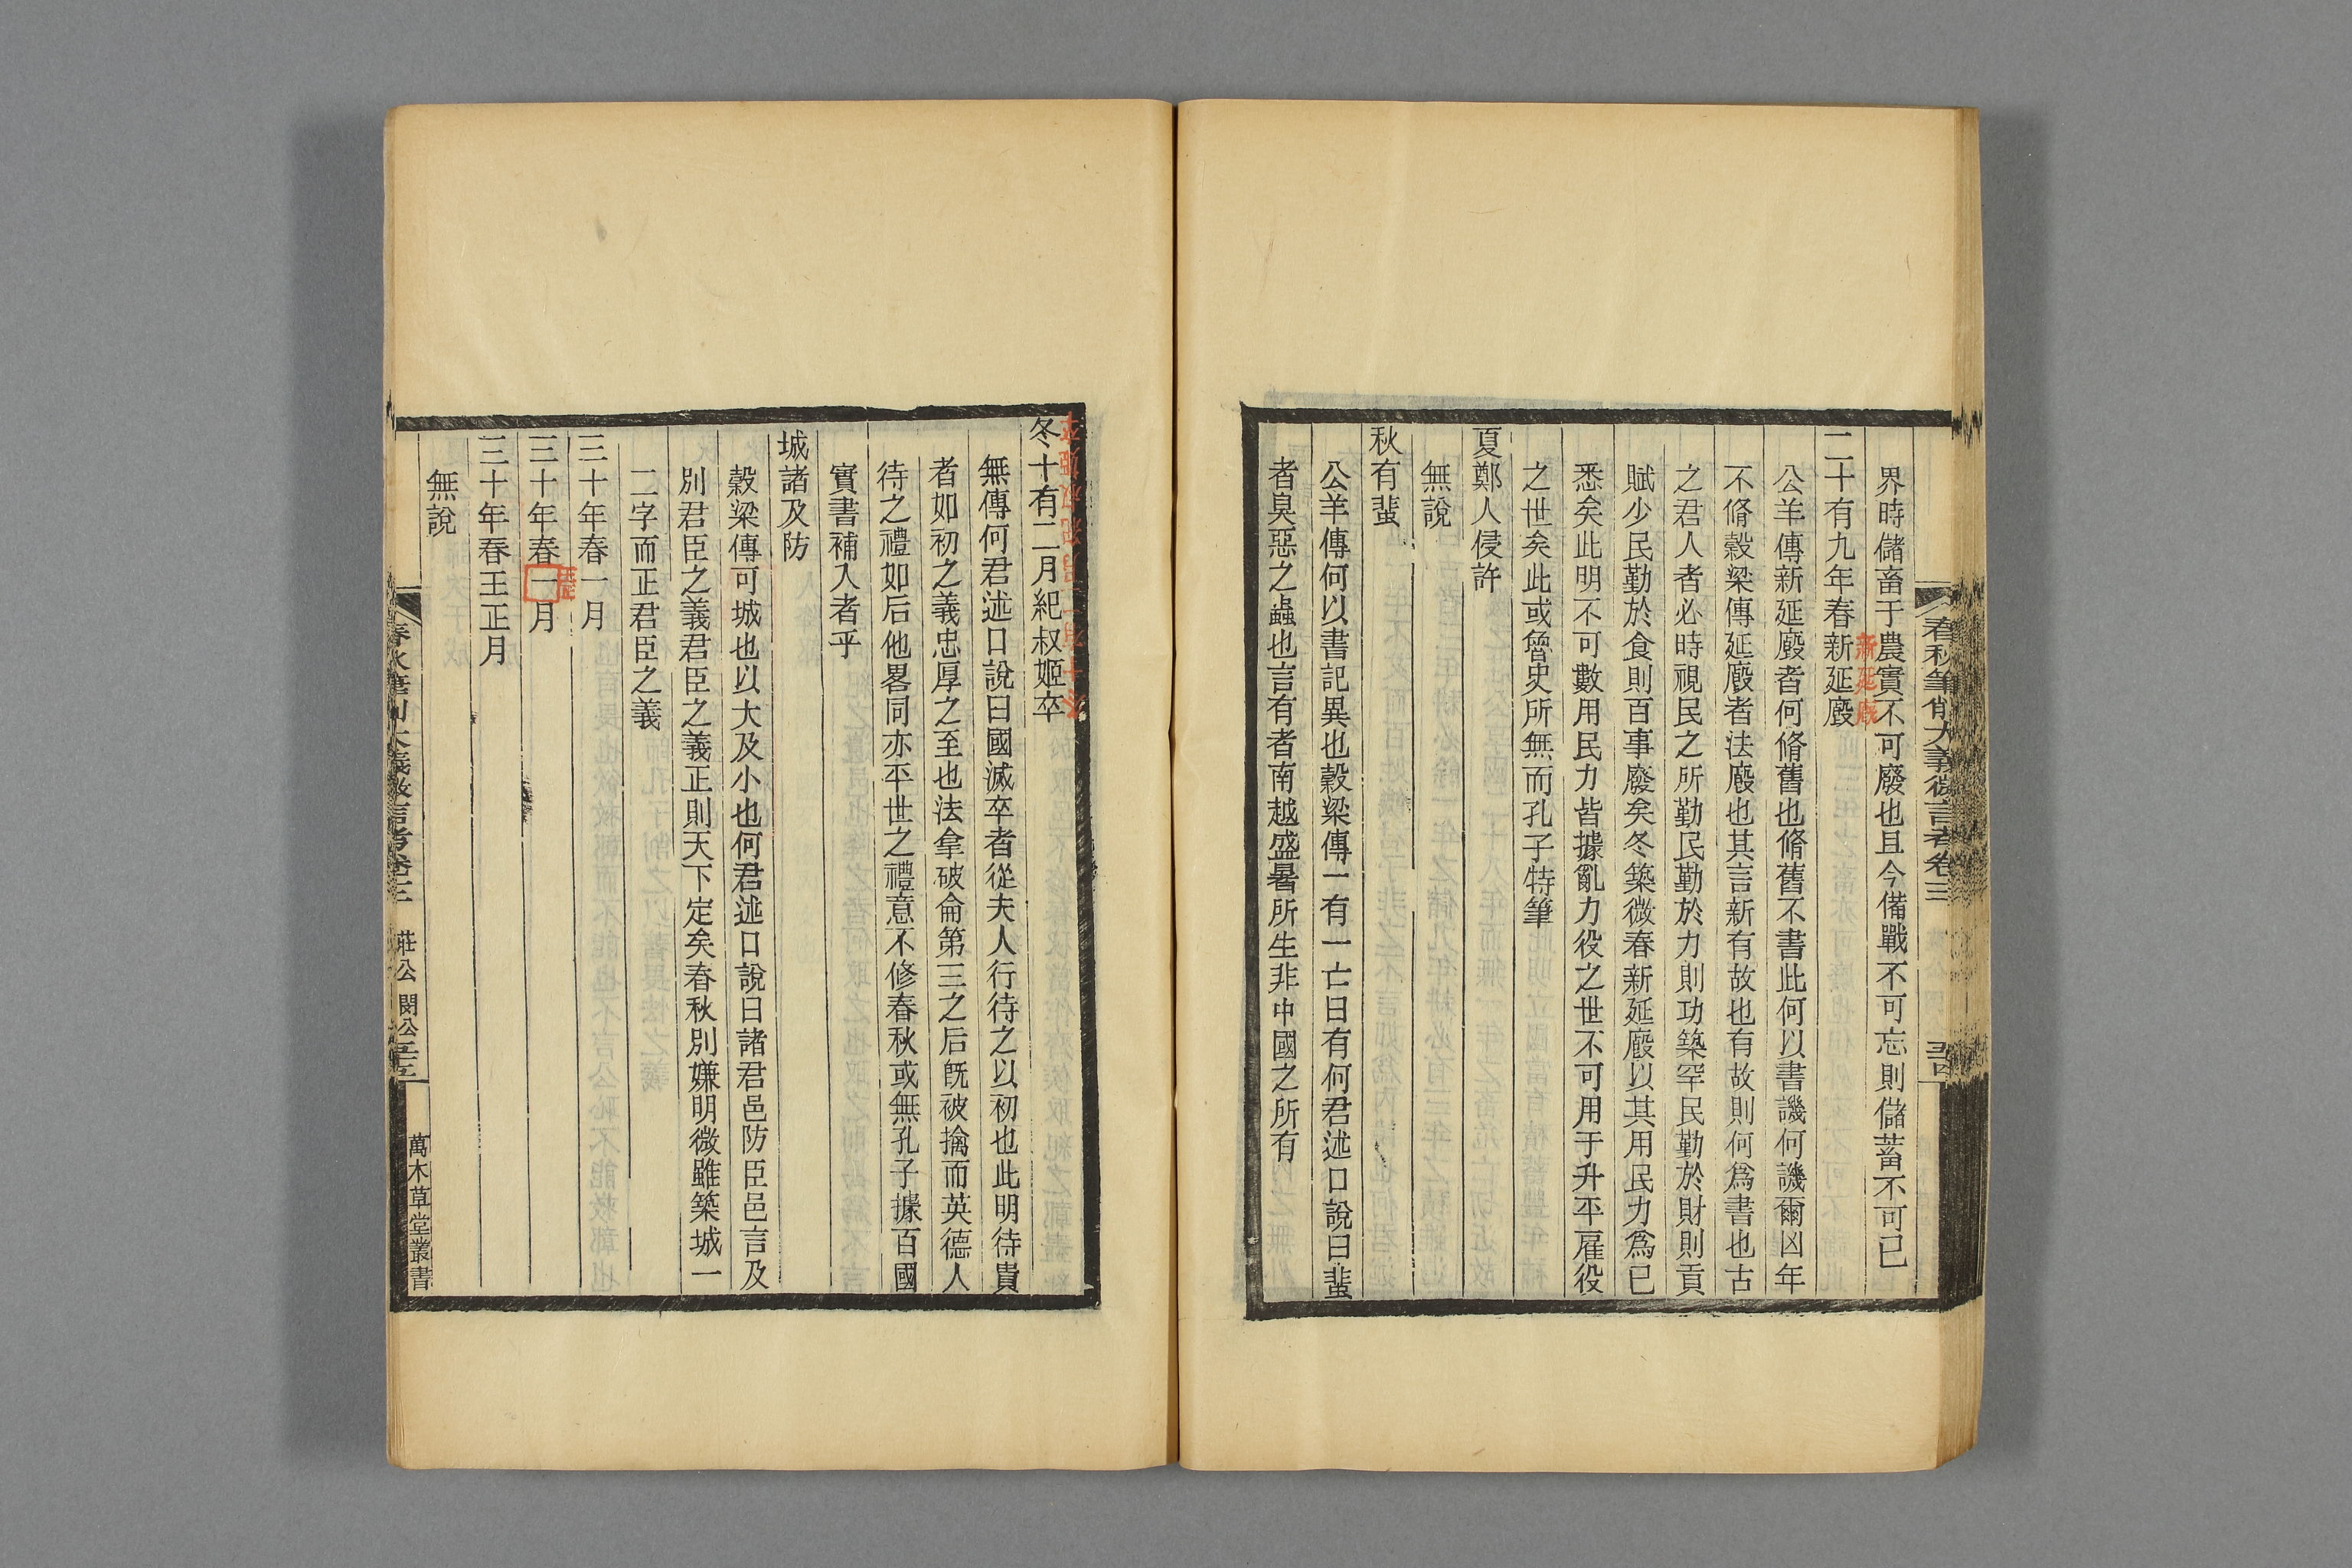 春秋筆削大義微言考卷三
界時儲畜于農實不可廢也且今備戰不可忘則儲蓄不可已
二十有九年春新延廄
新延廄
公羊傳新延廄者何脩舊也脩舊不書此何以書譏何譏爾凶年
不脩穀梁傳延廄者法廄也其言新有故也有故則何爲書也古
之君人者必時視民之所勤民勤於力則功築罕民勤於財則貢
賦少民勤於食則百事廢矣冬築微春新延廄以其用民力爲已
悉矣此明不可數用民力皆據亂力役之世不可用于升平雇役
之世矣此或魯史所無而孔子特筆
夏鄭人侵許
無說
秋有蜚
公羊傳何以書記異也穀梁傳一有一亡曰有何君述口說曰蜚
者臭惡之蟲也言有者南越盛暑所生非中國之所有
冬十有二月紀叔姬卒
無傳何君述口說曰國滅卒者從夫人行待之以初也此明待貴
者如初之義忠厚之至也法拿破侖第三之后旣被擒而英德人
待之禮如后他畧同亦平世之禮意不修春秋或無孔子據百國
實書補入者乎
城諸及防
穀梁傳可城也以大及小也何君述口說曰諸君邑防臣邑言及
別君臣之義君臣之義正則天下定矣春秋別嫌明微雖築城一
二字而正君臣之義
三十年春一月
三十年春一月
三十年春王正月
無說
春秋筆削大義微言考卷三 莊公 閔公
萬木草堂叢書